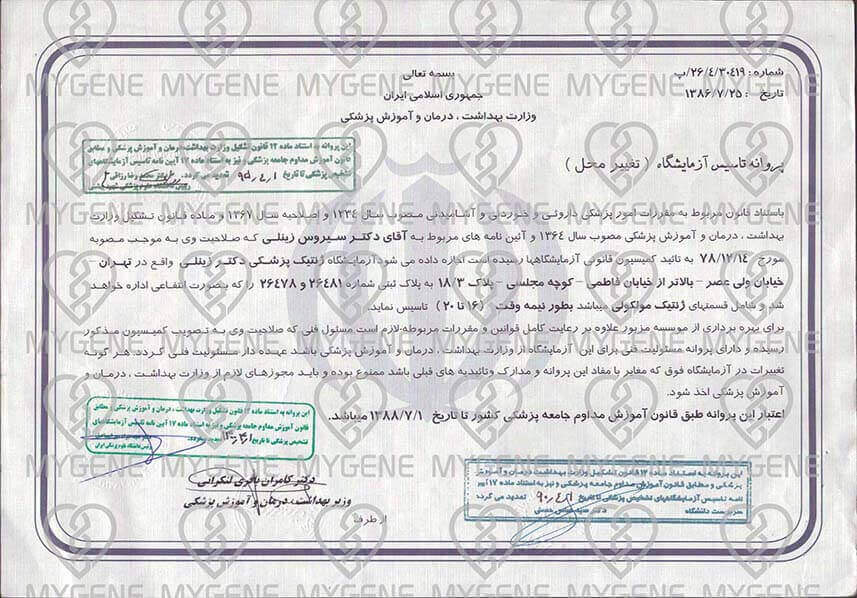 شماره : ۲۶/۴/۳۰۴۱۹/پ
تاریخ : ۱۳۸۶/۷/۲۵
بسمه تعالی
جمهوری اسلامی ایران
وزارت بهداشت ، درمان و آموزش پزشکی
این پروانه به استناد ماده ۱۳ قانون تشکیل وزارت بهداشت، درمان و آموزش پزشکی و مطابق
قانون آموزش مداوم جامعه پزشکی و نیز به استناد ماده ۱۷ آیین نامه تاسیس آزمایشگاههای
تشخیص پزشکی تا تاریخ تمدید می گردد.
پروانه تاسیس آزمایشگاه ( تغییر محل )
باستناد قانون مربوط به مقررات امور پزشکی داروئی و خوردنی و آشامیدنی مصوب سال ۱۳۳۴ و اصلاحیه سال ۱۳۶۷ و ماده قانون تشکیل وزارت
بهداشت ، درمان و آموزش پزشکی مصوب سال ۱۳۶۴ و آئین نامه های مربوط به آقای دکتر سیروس زینلی که صلاحیت وی به موجب مصوبه
مورخ ۷۸/۱۲/۱۴ به تائید کمیسیون قانونی آزمایشگاهها رسیده است اجازه داده می شود آزمایشگاه ژنتیک پزشکی دکتر زینلی واقع در تهران -
خیابان ولی عصر - بالاتر از خیابان فاطمی - کوچه مجلسی - پلاک ۱۸/۳ به پلاک ثبتی شماره ۲۶۴۸۱ و ۲۶۴۷۸ را که بصورت انتفاعی اداره خواهد
شد و شامل قسمتهای ژنتیک مولکولی میباشد بطور نیمه وقت (۱۶ تا ۲۰) تاسیس نماید.
برای بهره برداری از موسسه مزبور علاوه بر رعایت کامل قوانین و مقررات مربوطه لازم است مسئول فنی که صلاحیت وی به تصویب کمیسیون مذکور
رسیده و دارای پروانه مسئولیت فنی برای این آزمایشگاه از وزارت بهداشت ، درمان و آموزش پزشکی باشد عهده دار مسئولیت فنی گردد. هر گونه
تغییرات در آزمایشگاه فوق که مغایر با مفاد این پروانه و مدارک وتائیدیه های قبلی باشد ممنوع بوده و باید مجوزهای لازم از وزارت بهداشت ، درمان و
آموزش پزشکی اخذ شود.
اعتبار این پروانه طبق قانون آموزش مداوم جامعه پزشکی کشور تا تاریخ ۱۳۸۸/۷/۱ میباشد.
این پروانه به استناد ماده ۱۳ قانون تشکیل وزارت بهداشت ، درمان و آموزش پزشکی و مطابق
قانون آموزش مداوم جامعه پزشکی و نیز به استناد ماده ۱۷ آیین نامه تاسیس آزمایشگاههای
تشخیص پزشکی تا تاریخ
دکتر کامران باقری لنکرانی
وزیر بهداشت، درمان و آموزش پزشکی
از طرف
این پروانه به استناد ماده ۱۳ قانون تشکیل وزارت بهداشت درمان و آموزش
پزشکی و مطابق قانون آموزش مداوم جامعه پزشکی و نیز به استناد ماده ۱۷ آیین
نامه تاسیس آزمایشگاههای تشخیص پزشکی تا تاریخ تمدید می گردد
سرپرست دانشگاه
MYGENE